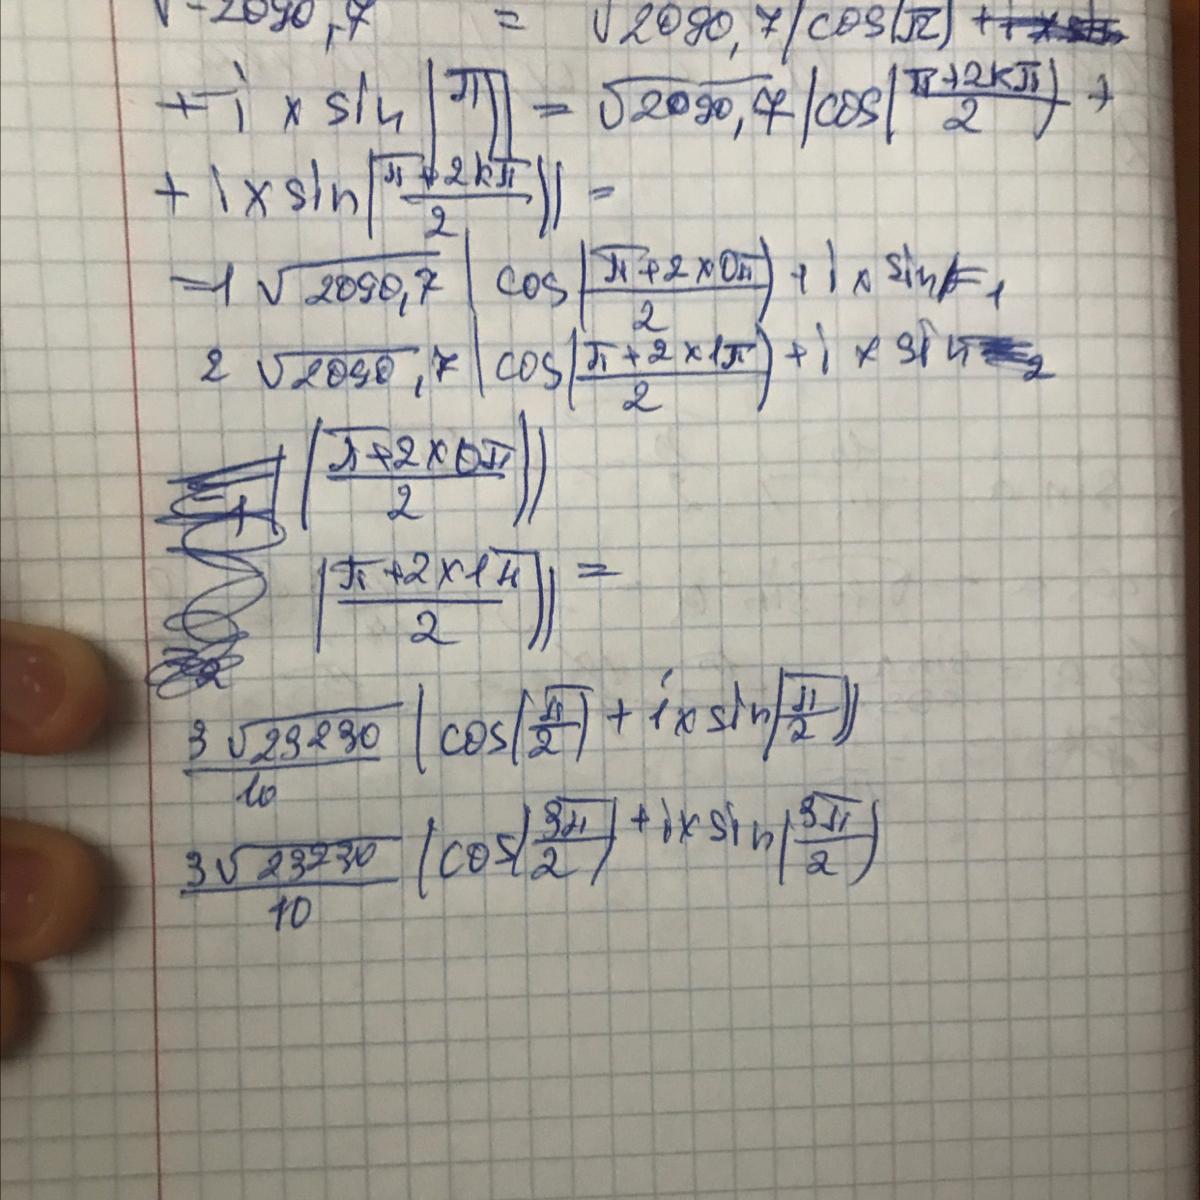 √-2090,7 = √2090,7(cos(π) +
+ i x sin(π)) = √2090,7(cos((π+2kπ)/2) +
+ i x sin((π+2kπ)/2)) =
= 1 √2090,7 (cos((π+2x0π)/2) + i x sin 1
2 √2090,7 (cos((π+2x1π)/2) + i x sin 2
1 ((π+2x0π)/2))
((π+2x1π)/2)) =
3√23230/10 (cos(π/2) + i x sin(π/2))
3√23230/10 (cos(3π/2) + i x sin(3π/2)